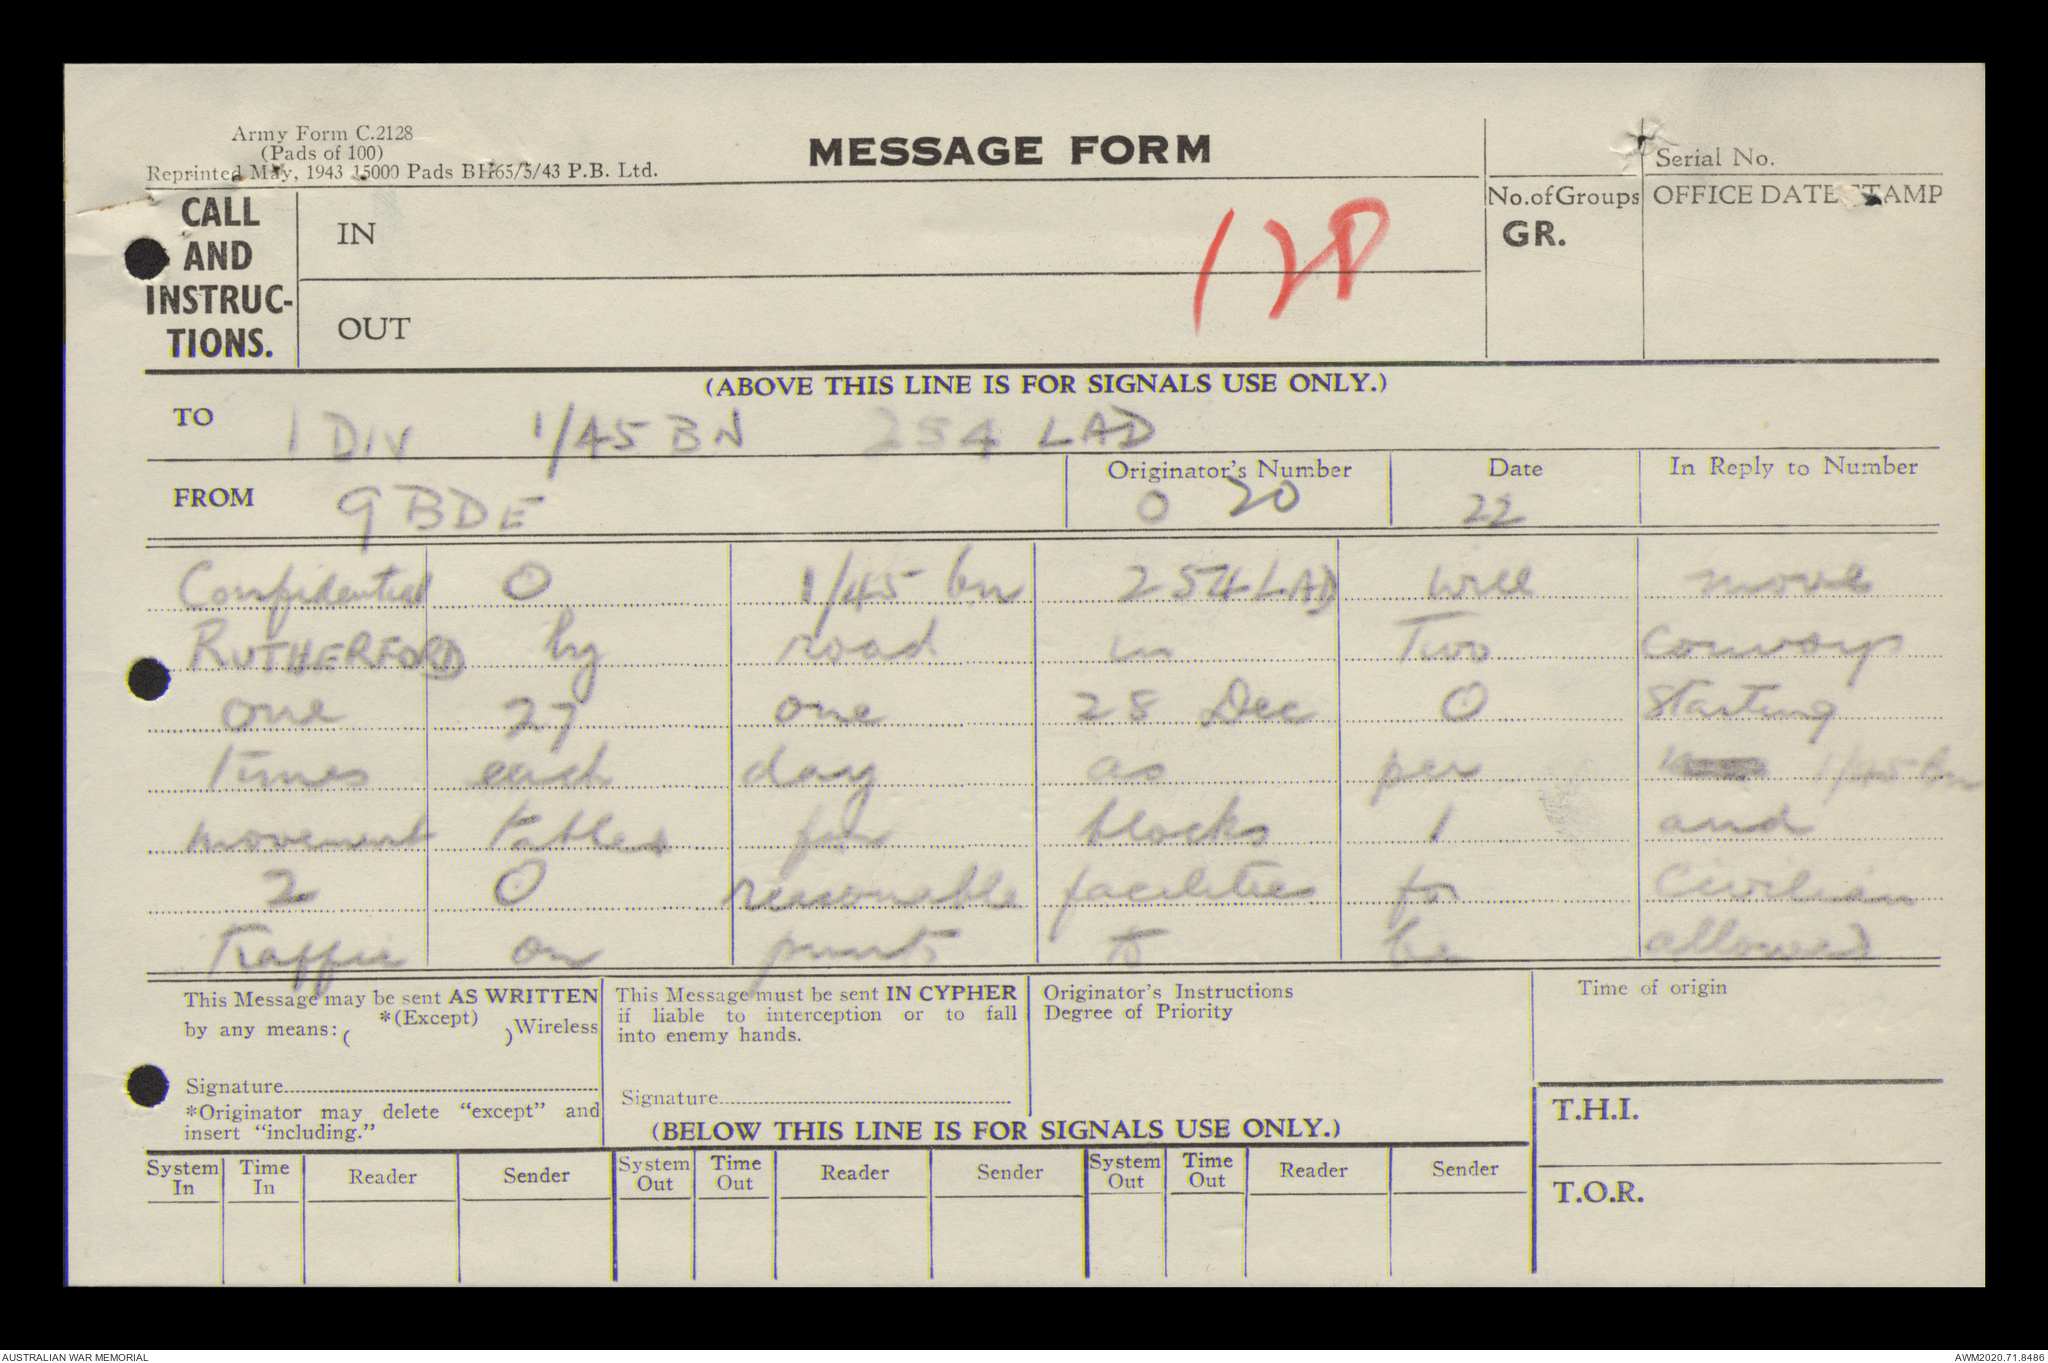 Army Form C.2128
(Pads of 100)
Reprinted May, 1943 15000 Pads BH65/5/43 P.B. Ltd.
MESSAGE FORM
Serial No.
CALL AND INSTRUC-TIONS.
IN
128
No. of Groups
GR.
OFFICE DATE STAMP
OUT
(ABOVE THIS LINE IS FOR SIGNALS USE ONLY.)
TO 1 DIV 1/45 BN 254 LAD
FROM 9 BDE
Originator's Number O 20
Date 22
In Reply to Number
Confidential O 1/45 bn 254 LAD will move
RUTHERFORD by road in Two convoys
one 27 one 28 Dec O Starting
times each day as per 1/45 bn
movement tables for blocks 1 and
2 O reasonable facilities for Civilian
Traffic on punts to be allowed
This Message may be sent AS WRITTEN
by any means: ( *(Except) ) Wireless
Signature
*Originator may delete "except" and
insert "including."
This Message must be sent IN CYPHER
if liable to interception or to fall
into enemy hands.
Signature
Originator's Instructions
Degree of Priority
Time of origin
T.H.I.
T.O.R.
(BELOW THIS LINE IS FOR SIGNALS USE ONLY.)
System In Time In Reader Sender System Out Time Out Reader Sender System Out Time Out Reader Sender
AUSTRALIAN WAR MEMORIAL
AWM2020.71.8486